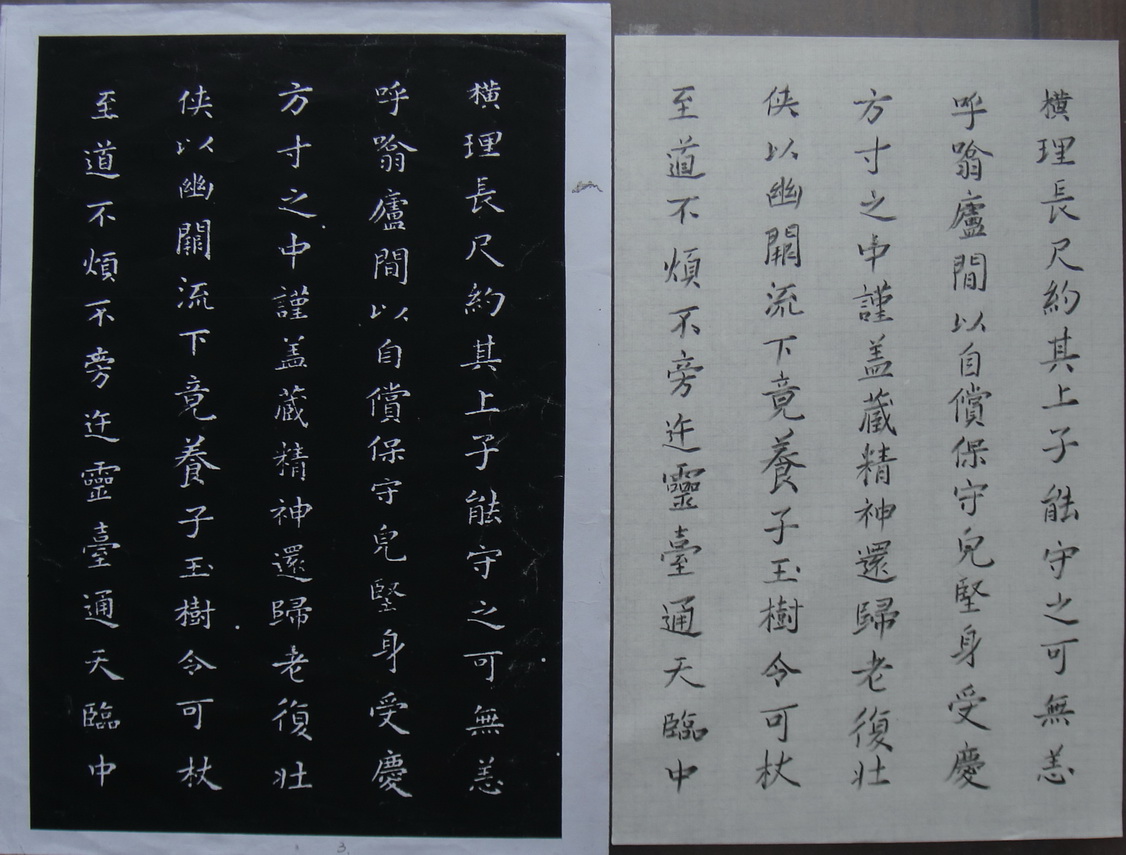 橫理長尺約其上子能守之可無恙
呼噏廬間以自償保守皃堅身受慶
方寸之中謹盖藏精神還歸老復壯
俠以幽闕流下竟養子玉樹令可杖
至道不煩不旁迕靈臺通天臨中
3.
橫理長尺約其上子能守之可無恙
呼噏廬間以自償保守皃堅身受慶
方寸之中謹盖藏精神還歸老復壯
俠以幽闕流下竟養子玉樹令可杖
至道不煩不旁迕靈臺通天臨中